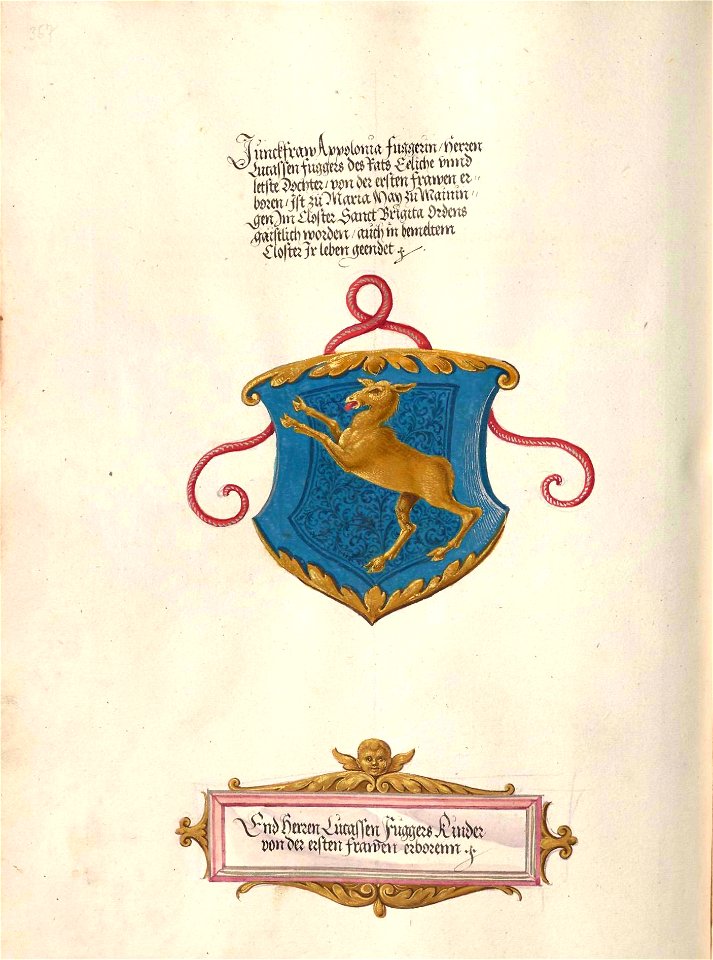 367
Junckfraw Appolonia Fuggerin / Herren
Lucassen Fuggers des Rats Eeliche vnnd
letste Dochter / von der ersten Frawen er-
boren / ist zu Maria May zu Mainin-
gen Jm Closter Sanct Brigita Ordens
gaistlich worden / auch in bemeltem
Closter Jr leben geendet
End Herren Lucassen Fuggers Kinder
von der ersten Frawen erborenn